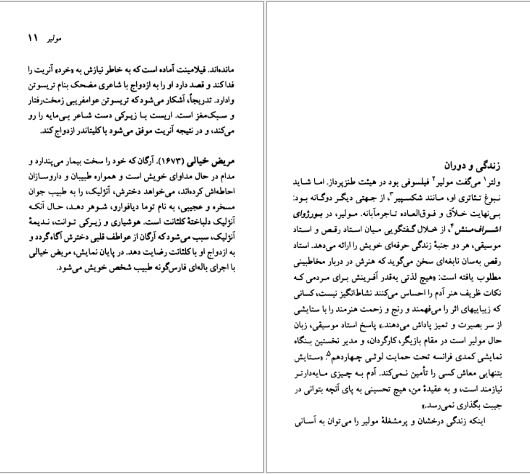 مولیر ۱۱
مانده‌اند. فیلامینت آماده است که به خاطر نیازش به «خرد» آنریت را
فدا کند و قصد دارد او را به ازدواج با شاعری مضحک بنام تریسوتن
وادارد. تدریجاً، آشکار می‌شود که تریسوتن عوامفریبی زمخت‌رفتار
و سبک‌مغز است. اریست با زیرکی دست شاعر بی‌مایه را رو
می‌کند، و در نتیجه آنریت موفق می‌شود با کلیتاندر ازدواج کند.
مریض خیالی (۱۶۷۳). آرگان که خود را سخت بیمار می‌پندارد و
مدام در حال مداوای خویش است و همواره طبیبان و داروسازان
احاطه‌اش کرده‌اند، می‌خواهد دخترش، آنژلیک، را به طبیب جوان
مسخره و عجیبی، به نام توما دیافوارو، شوهر دهد، حال آنکه
آنژلیک دلباختهٔ کلئانت است. هوشیاری و زیرکی توانت، ندیمهٔ
آنژلیک، سبب می‌شود که آرگان از عواطف قلبی دخترش آگاه گردد و
به ازدواج او با کلئانت رضایت دهد. در پایان نمایش، مریض خیالی
با اجرای باله‌ای فارس‌گونه طبیب شخص خویش می‌شود.
زندگی و دوران
ولتر۱ می‌گفت مولیر۲ فیلسوفی بود در هیئت طنزپرداز. اما شاید
نبوغ تئاتری او، مانند شکسپیر۳، از جهتی دیگر دوگانه بود:
بی‌نهایت خلاّق و فوق‌العاده تاجرمآبانه. مولیر، در بورژوای
اشراف‌منش۴، از خلال گفتگویی میان استاد رقص و استاد
موسیقی، هر دو جنبهٔ زندگی حرفه‌ای خویش را ارائه می‌دهد. استاد
رقص به‌سان نابغه‌ای سخن می‌گوید که هنرش در دربار مخاطبینی
مطلوب یافته است: «هیچ لذتی به‌قدر آفرینش برای مردمی که
نکات ظریف هنر آدم را احساس می‌کنند نشاط‌انگیز نیست، کسانی
که زیباییهای اثر را می‌فهمند و رنج و زحمت هنرمند را با ستایشی
از سر بصیرت و تمیز پاداش می‌دهند.» پاسخ استاد موسیقی، زبان
حال مولیر است در مقام بازیگر، کارگردان، و مدیر نخستین بنگاه
نمایشی کمدی فرانسه تحت حمایت لوئی چهاردهم۵. «ستایش
بتنهایی معاش کسی را تأمین نمی‌کند. آدم به چیزی مایه‌دارتر
نیازمند است، و به عقیدهٔ من، هیچ تحسینی به پای آنچه بتوانی در
جیبت بگذاری نمی‌رسد.»
اینکه زندگی درخشان و پرمشغلهٔ مولیر را می‌توان به آسانی